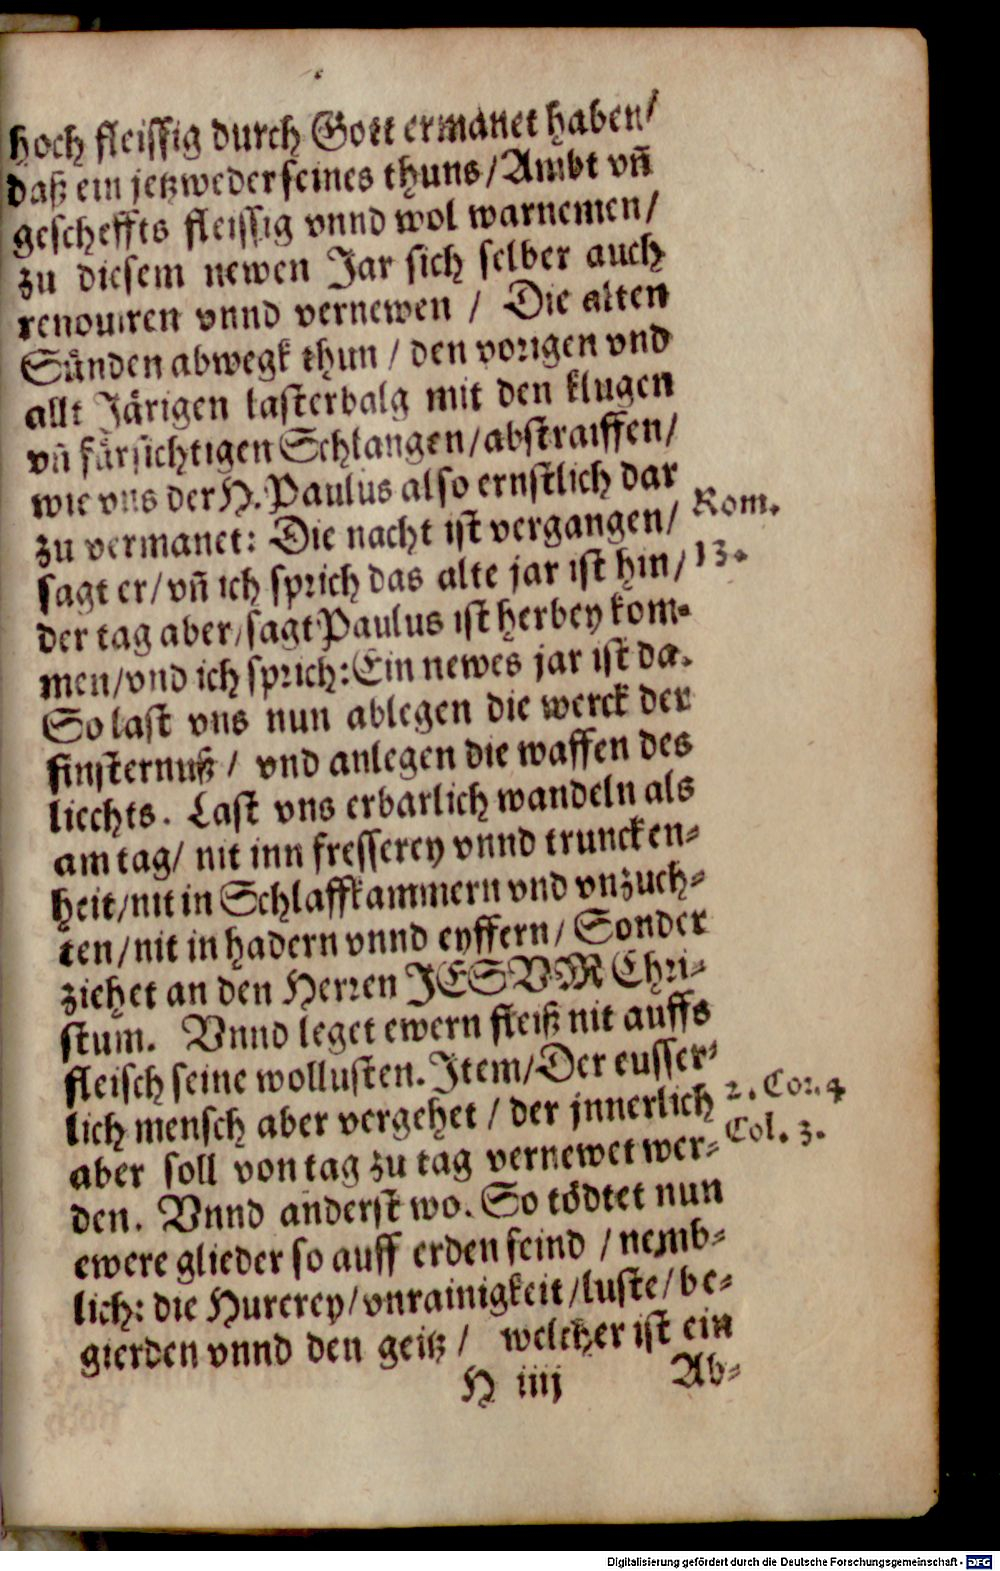 hoch fleissig durch Gott ermanet haben/
daß ein jetzweder seines thuns/Ambt vñ
gescheffts fleissig vnnd wol warnemen/
zu diesem newen Jar sich selber auch
renouiren vnnd vernewen / Die alten
Sünden abwegk thun / den vorigen vnd
allt Järigen lasterbalg mit den klugen
vñ fürsichtigen Schlangen/abstraiffen/
wie vns der H. Paulus also ernstlich dar
zu vermanet: Die nacht ist vergangen/
Rom.
sagt er/vñ ich sprich das alte jar ist hin/
13.
der tag aber/sagt Paulus ist herbey kom-
men/vnd ich sprich:Ein newes jar ist da.
So last vns nun ablegen die werck der
finsternuß / vnd anlegen die waffen des
liechts. Last vns erbarlich wandeln als
am tag/ nit inn fresserey vnnd truncken-
heit/nit in Schlaffkammern vnd vnzuch-
ten/nit in hadern vnnd eyffern/ Sonder
ziehet an den Herren JESVM Chri-
stum. Vnnd leget ewern fleiß nit auffs
fleisch seine wollusten. Item/Der eusser-
lich mensch aber vergehet / der jnnerlich
2. Cor. 4
aber soll von tag zu tag vernewet wer-
Col. 3.
den. Vnnd anderst wo. So tödtet nun
ewere glieder so auff erden seind / nemb-
lich: die Hurerey/vnrainigkeit/luste/be-
gierden vnnd den geitz / welcher ist ein
H iiij
Ab-
Digitalisierung gefördert durch die Deutsche Forschungsgemeinschaft - DFG